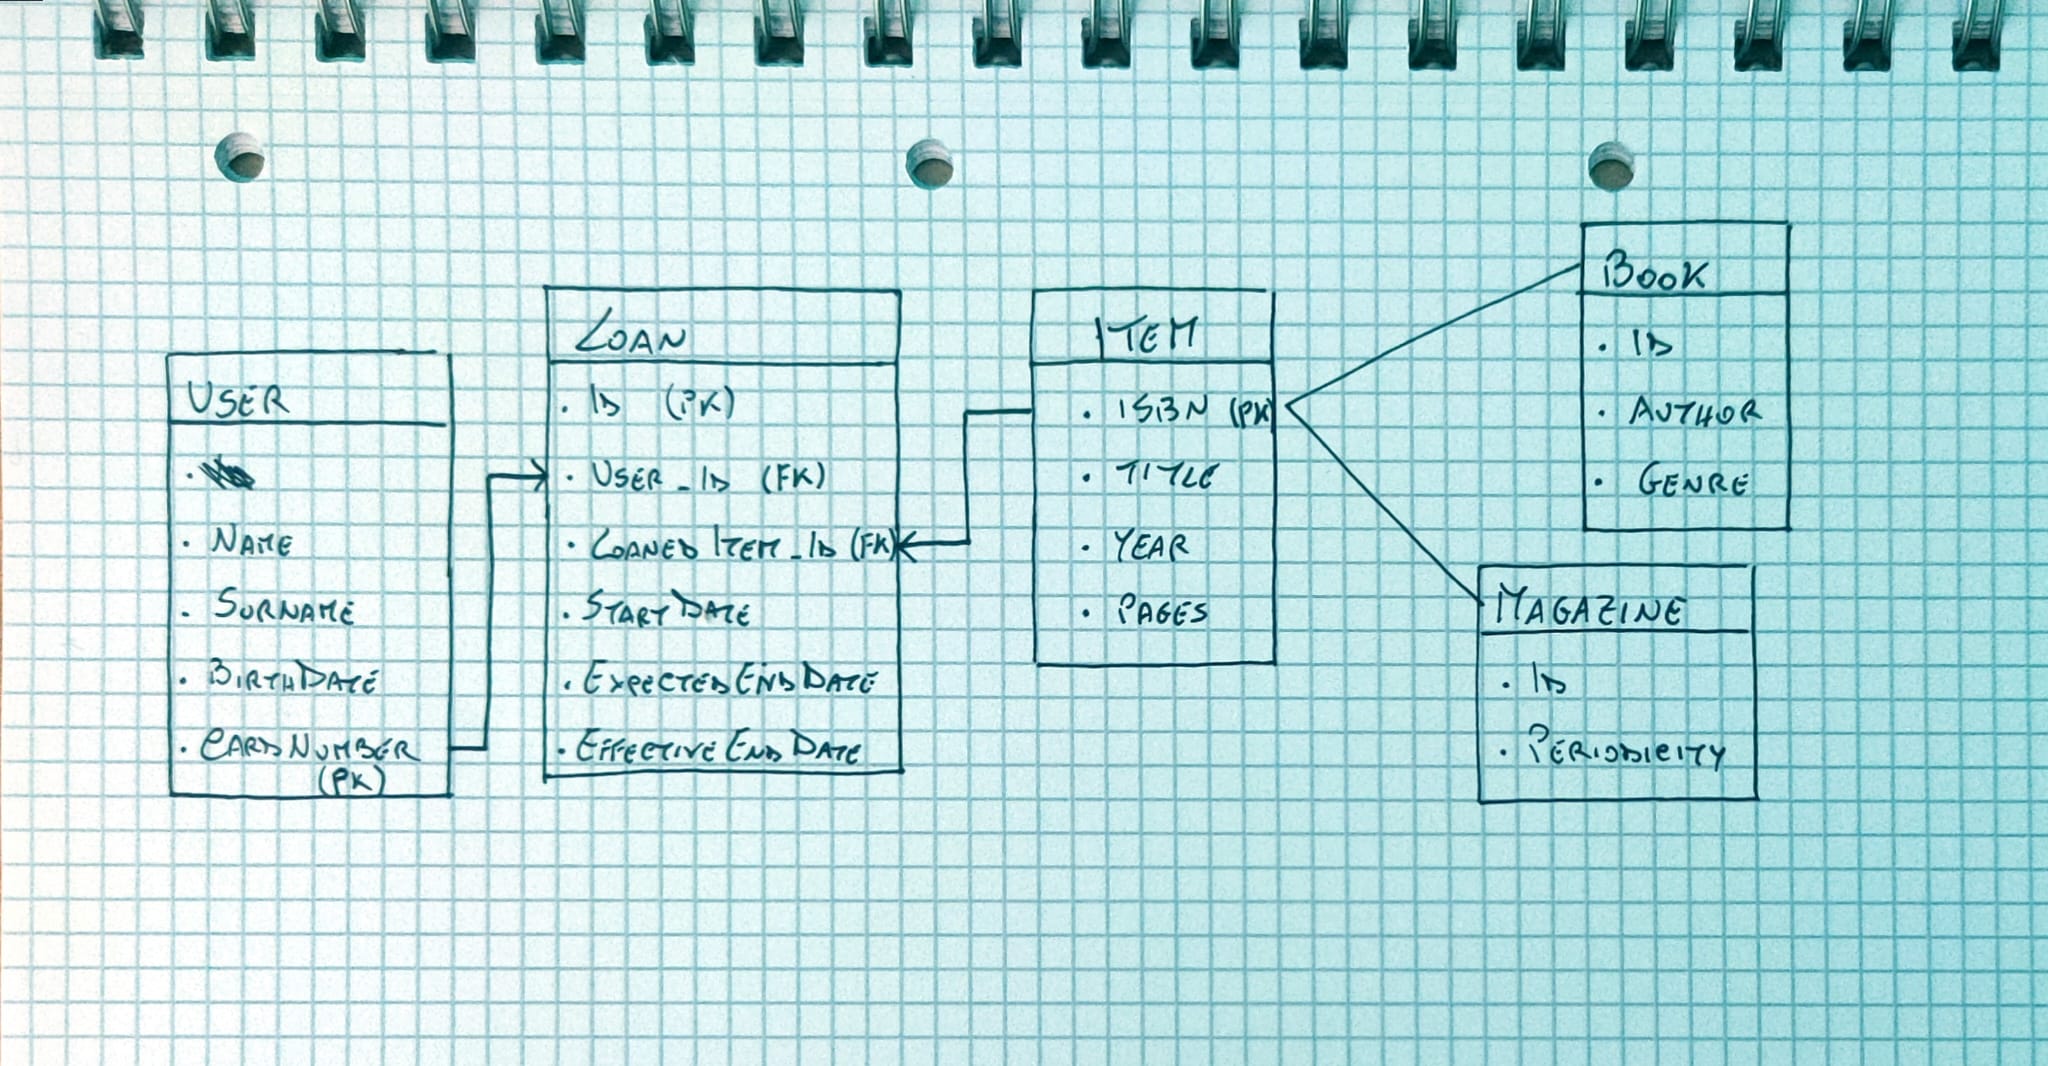 USER
· NAME
· SURNAME
· BIRTHDATE
· CARDNUMBER
(PK)
LOAN
· ID (PK)
· USER_ID (FK)
· LOANED ITEM_ID (FK)
· STARTDATE
· EXPECTEDENDDATE
· EFFECTIVE END DATE
ITEM
· ISBN (PK)
· TITLE
· YEAR
· PAGES
BOOK
· ID
· AUTHOR
· GENRE
MAGAZINE
· ID
· PERIODICITY